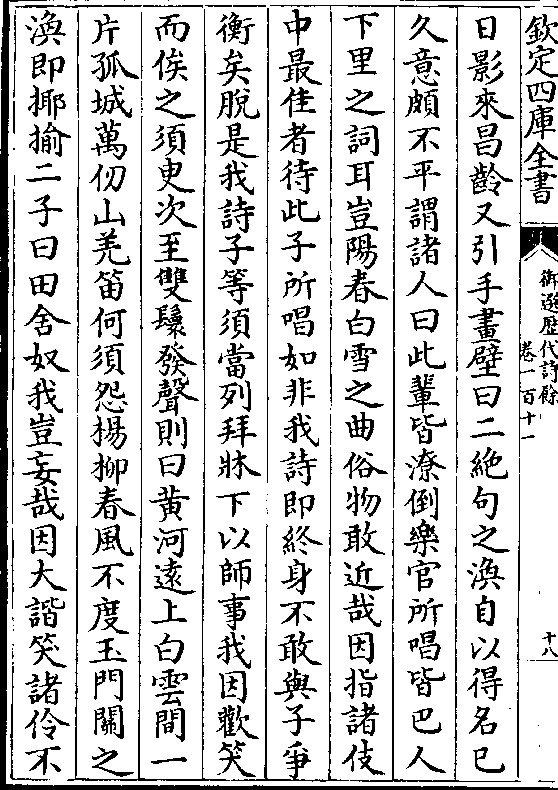 欽定四庫全書
御選歴代詩餘
卷一百十一
十八
日影來昌齡又引手畫壁曰二絶句之渙自以得名已
久意頗不平謂諸人曰此輩皆潦倒樂官所唱皆巴人
下里之詞耳豈陽春白雪之曲俗物敢近哉因指諸伎
中最佳者待此子所唱如非我詩即終身不敢與子爭
衡矣脫是我詩子等須當列拜牀下以師事我因歡笑
而俟之須臾次至雙鬟發聲則曰黄河遠上白雲間一
片孤城萬仞山羌笛何須怨楊柳春風不度玉門關之
渙即揶揄二子曰田舍奴我豈妄哉因大諧笑諸伶不